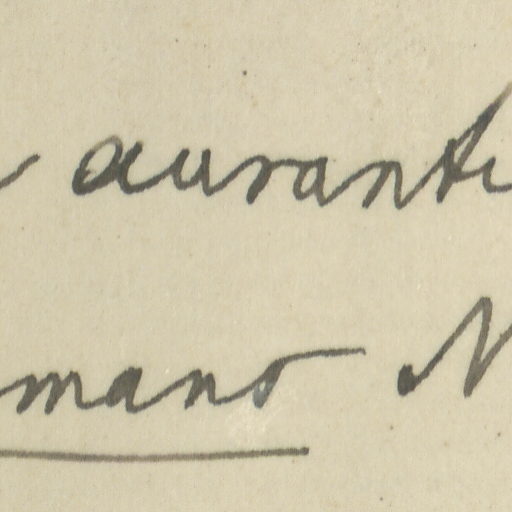 auranti
mano N